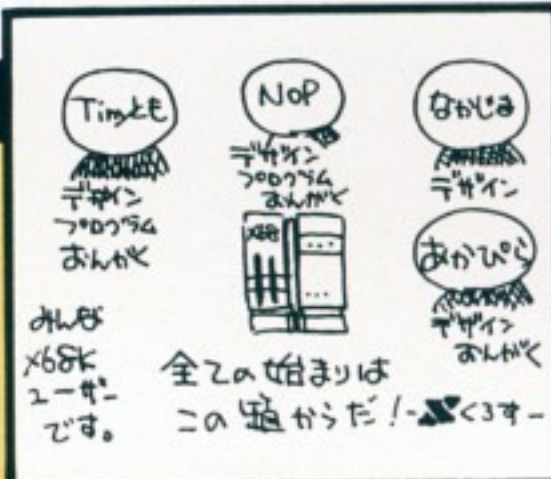 Timとも
デザイン
プログラム
おんがく
NOP
デザイン
プログラム
おんがく
なかじま
デザイン
あかぴら
デザイン
おんがく
X68
みんな
X68K
ユーザー
です。
全ての始まりは
この箱からだ！-
くろすー